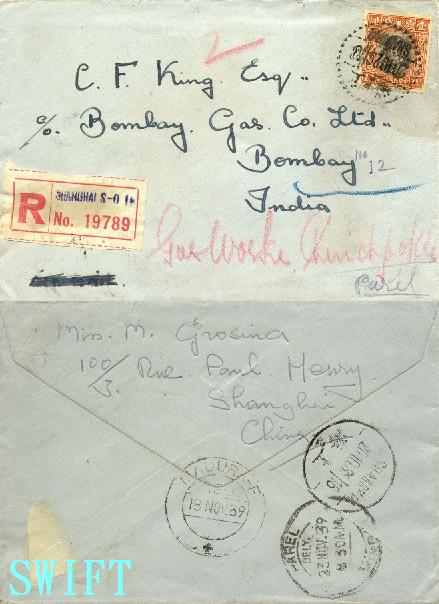 2
C. F. King Esq..
c/o. Bombay. Gas. Co. Ltd..
Bombay No 12
India
R
SHANGHAI S-O
No. 19789
Gas Works Chinchpokli
Parel
Miss. M. Grosina
100/3. Rue. Paul. Henry.
Shanghai
China
18 NOV. 39
SHANGHAI
PAREL
DELY.
23 NOV. 39
8 30AM
SWIFT